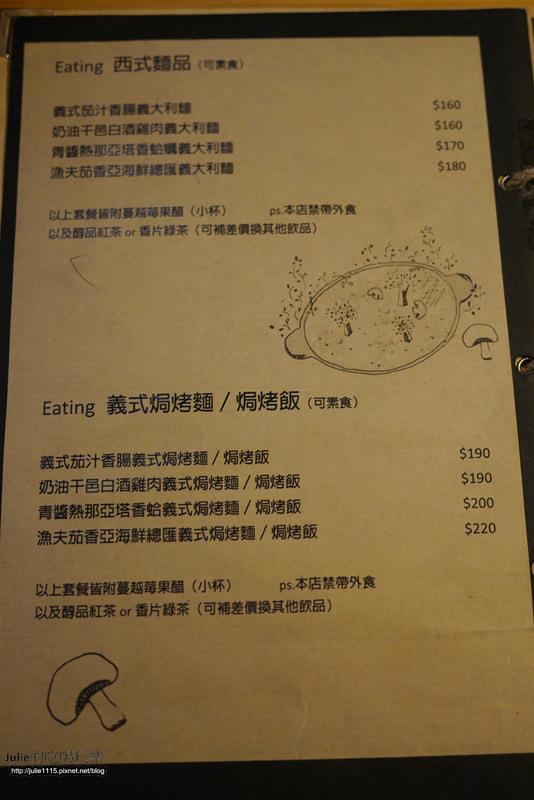 Eating 西式麵品（可素食）
義式茄汁香腸義大利麵 $160
奶油干邑白酒雞肉義大利麵 $160
青醬熱那亞塔香蛤蠣義大利麵 $170
漁夫茄香亞海鮮總匯義大利麵 $180
以上套餐皆附蔓越莓果醋（小杯） ps.本店禁帶外食
以及醇品紅茶 or 香片綠茶（可補差價換其他飲品）
Eating 義式焗烤麵 / 焗烤飯（可素食）
義式茄汁香腸義式焗烤麵 / 焗烤飯 $190
奶油干邑白酒雞肉義式焗烤麵 / 焗烤飯 $190
青醬熱那亞塔香蛤義式焗烤麵 / 焗烤飯 $200
漁夫茄香亞海鮮總匯義式焗烤麵 / 焗烤飯 $220
以上套餐皆附蔓越莓果醋（小杯） ps.本店禁帶外食
以及醇品紅茶 or 香片綠茶（可補差價換其他飲品）
Julie的吃喝玩樂
http://julie1115.pixnet.net/blog